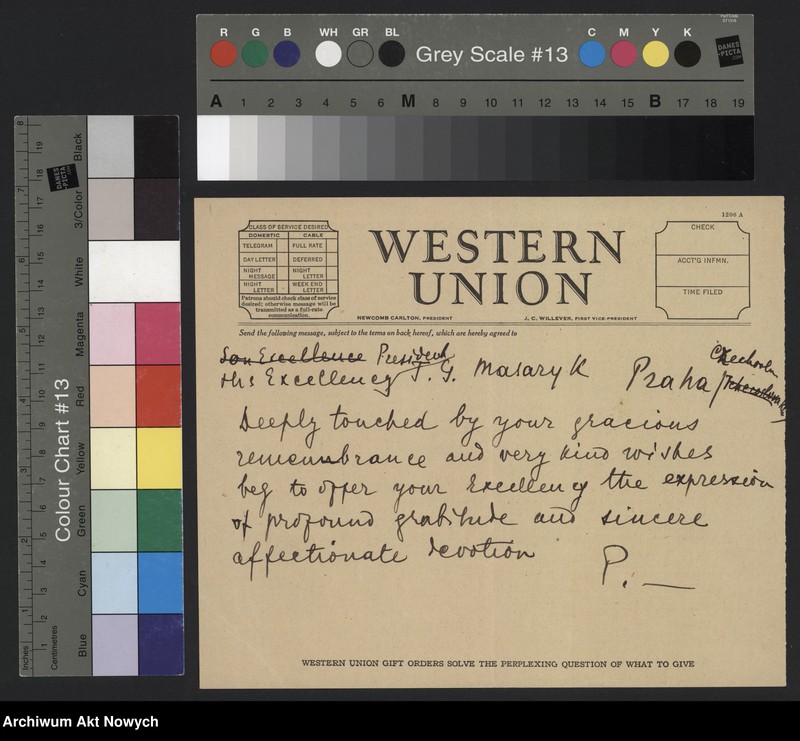 R G B WH GR BL Grey Scale #13 C M Y K
DANES
PICTA
.COM
A 1 2 3 4 5 6 M 8 9 10 11 12 13 14 15 B 17 18 19
Colour Chart #13
Black
3/Color
White
Magenta
Red
Yellow
Green
Cyan
Blue
Inches
Centimetres
1206 A
CLASS OF SERVICE DESIRED
DOMESTIC CABLE
TELEGRAM FULL RATE
DAY LETTER DEFERRED
NIGHT MESSAGE NIGHT LETTER
NIGHT LETTER WEEK END LETTER
Patrons should check class of service
desired; otherwise message will be
transmitted as a full-rate
communication.
WESTERN
UNION
NEWCOMB CARLTON, PRESIDENT J. C. WILLEVER, FIRST VICE-PRESIDENT
CHECK
ACCT'G INFMN.
TIME FILED
Send the following message, subject to the terms on back hereof, which are hereby agreed to
Son Excellence President
His Excellency T. G. Masaryk Praha
Deeply touched by your gracious
remembrance and very kind wishes
beg to offer your Excellency the expression
of profound gratitude and sincere
affectionate devotion P. —
WESTERN UNION GIFT ORDERS SOLVE THE PERPLEXING QUESTION OF WHAT TO GIVE
Archiwum Akt Nowych